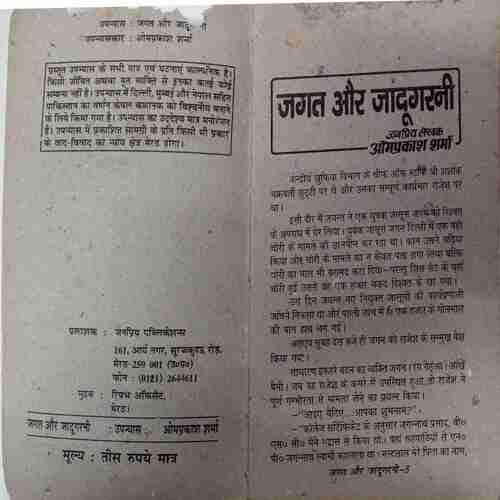 उपन्यास : जगत और जादूगरनी
उपन्यासकार : ओमप्रकाश शर्मा
प्रस्तुत उपन्यास के सभी पात्र एवं घटनाएं काल्पनिक हैं।
किसी जीवित अथवा मृत व्यक्ति से इनका कतई कोई
सम्बन्ध नहीं है। उपन्यास में दिल्ली, मुम्बई और नेपाल सहित
पाकिस्तान का वर्णन केवल कथानक को विश्वनीय बनाने
के लिये किया गया है। उपन्यास का उद्देश्य मात्र मनोरंजन
है। उपन्यास में प्रकाशित सामग्री के प्रति किसी भी प्रकार
के वाद-विवाद का न्याय क्षेत्र मेरठ होगा।
प्रकाशक : जनप्रिय पब्लिकेशन्स
161, आर्य नगर, सूरजकुण्ड रोड,
मेरठ-259 001 (उ०प्र०)
फोन : (0121) 2644611
मुद्रक : रिचाभ ऑफसैट,
मेरठ।
जगत और जादूगरनी : उपन्यास : ओमप्रकाश शर्मा
मूल्य : तीस रुपये मात्र
जगत और जादूगरनी
जनप्रिय लेखक
ओमप्रकाश शर्मा
केन्द्रीय खुफिया विभाग के चीफ ऑफ स्टाफ श्री अशोक
चक्रवर्ती छुट्टी पर थे और उनका सम्पूर्ण कार्यभार राजेश पर
था।
इसी दौर में जयन्त ने एक युवक जासूस जगन को रिश्वत
के अपराध में घेर लिया। युवक जासूस जगन दिल्ली में एक बड़ी
चोरी के मामले की छानबीन कर रहा था। काम उसने बढ़िया
किया और चोरी के मामले का न केवल पता लगा लिया बल्कि
चोरी का माल भी बरामद करा दिया—परन्तु जिस सेठ के यहाँ
चोरी हुई उससे वह एक हजार नकद रिश्वत के खा गया।
उन दिनों जयन्त नए नियुक्त जासूसों की कार्यप्रणाली
जांचने निकला था और पहली जांच में ही एक हजार के गोलमाल
की बात हाथ लग गई।
अतएव सुबह दस बजे ही जगन को राजेश के सम्मुख पेश
किया गया।
साधारण इकहरे बदन का व्यक्ति जगन। रंग गेहुंआ। आंखें
पैनी। जब वह राजेश के कमरे में उपस्थित हुआ तो राजेश ने
पूर्ण गम्भीरता से मामला लेने का प्रयत्न किया।
—"आइए बैठिए... आपका शुभनाम?"
—"कॉलेज सर्टिफिकेट के अनुसार जगन्नाथ प्रसाद, बी०
एस० सी० मैंने पास किया था। वहां सहपाठियों से एन०
पी० जगन्नाथ स्वामी कहलाता था। नन्दलाल मेरे पिता का नाम,
जगत और जादूगरनी-5